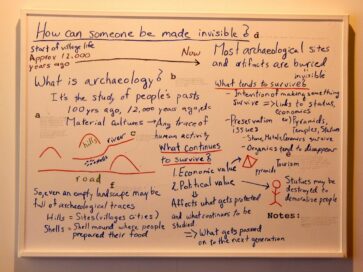 How can someone be made invisible? a
Start of village life
Approx 12.000
years ago
Now
Most archaeological sites
and artifacts are buried
invisible
b
What is archaeology?
It's the study of people's pasts
100 yrs ago, 12,000 years ago, etc
Material cultures → Any trace of
human activity
What tends to survive?
- Intention of making something
survive → Links to status,
economics
- Preservation → Pyramids,
issues temples, Statues
- Stone, Metals, Ceramics survive
- Organics tend to disappear
a
hills
river c
road E
What continues
to survive?
1. Economic value
2. Political value
Tourism
provide
Affects what gets protected
and what continues to be
studied
→ What gets passed
on to the next generation
Statues may be
destroyed to
demoralise people
So, even an empty landscape may be
full of archaeological traces
Hills = Sites (villages cities)
Shells = Shell mound where people
prepared their food
Notes: